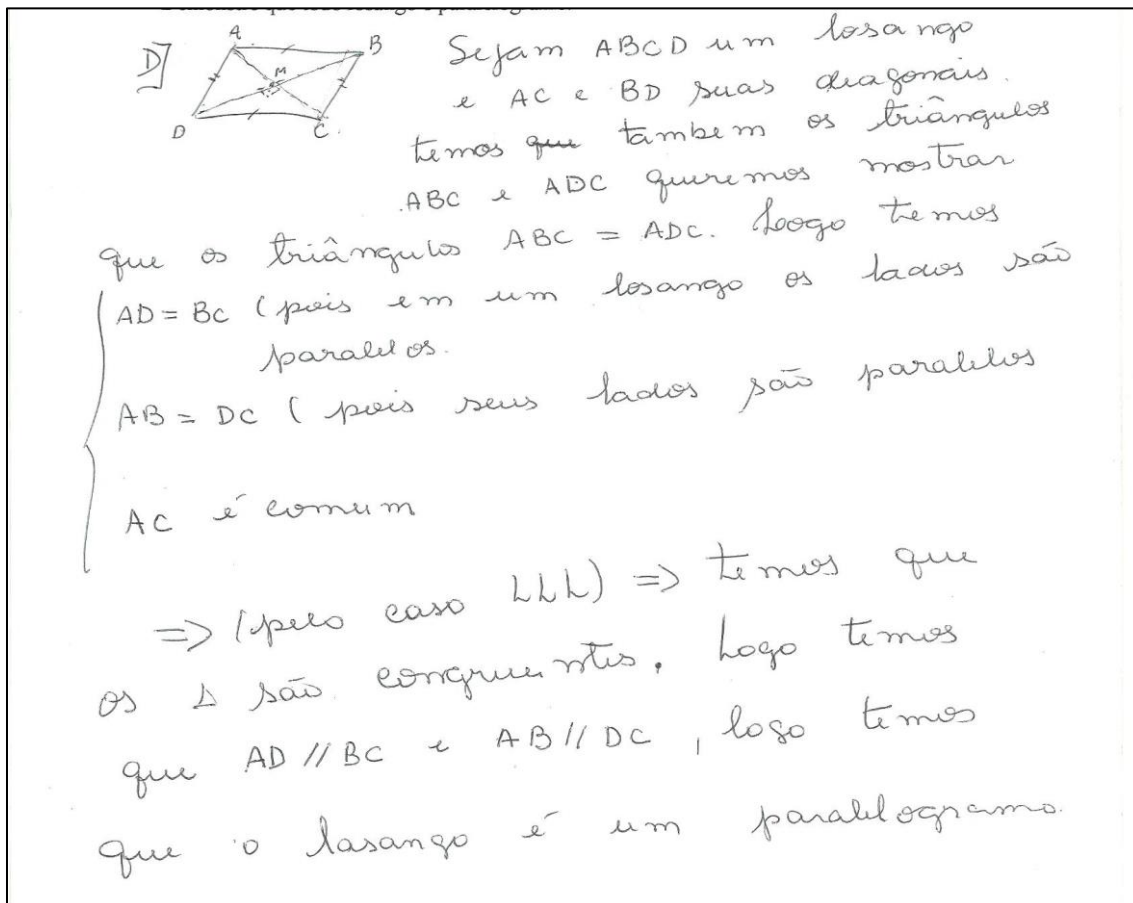 D]
A
B
M
D
C
Sejam ABCD um losango
e AC e BD suas diagonais.
temos que tambem os triângulos
ABC e ADC queremos mostrar
que os triângulos ABC = ADC. Logo temos
AD = BC (pois em um losango os lados são
paralelos.
AB = DC ( pois seus lados são paralelos
AC é comum
=> (pelo caso LLL) => temos que
os Δ são congruentes. Logo temos
que AD // BC e AB // DC , logo temos
que o lasango é um paralelogramo.